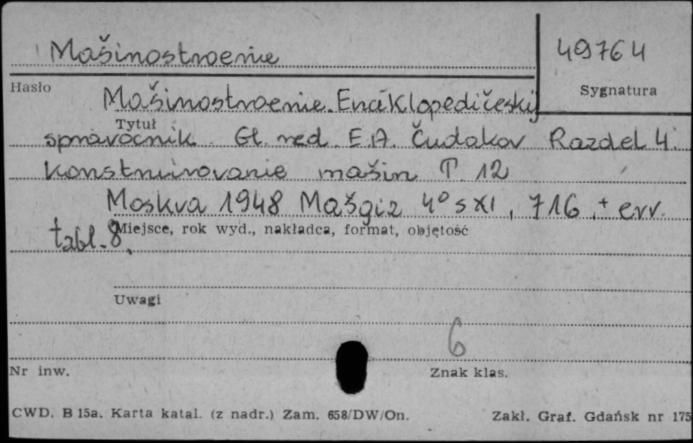 Mašinostroenie
49764
Hasło
Sygnatura
Mašinostroenie. Enciklopedičeskij
Tytuł
spravočnik. Gł. red. E.A. Čudakov Razdel 4.
Konstruirovanie mašin T 12
Moskva 1948 Mašgiz 4° s XI, 716, + err.
Miejsce, rok wyd., nakładca, format, objętość
tabl. 8.
Uwagi
6
Nr inw.
Znak klas.
CWD. B 15a. Karta katal. (z nadr.) Zam. 658/DW/On.
Zakł. Graf. Gdańsk nr 175